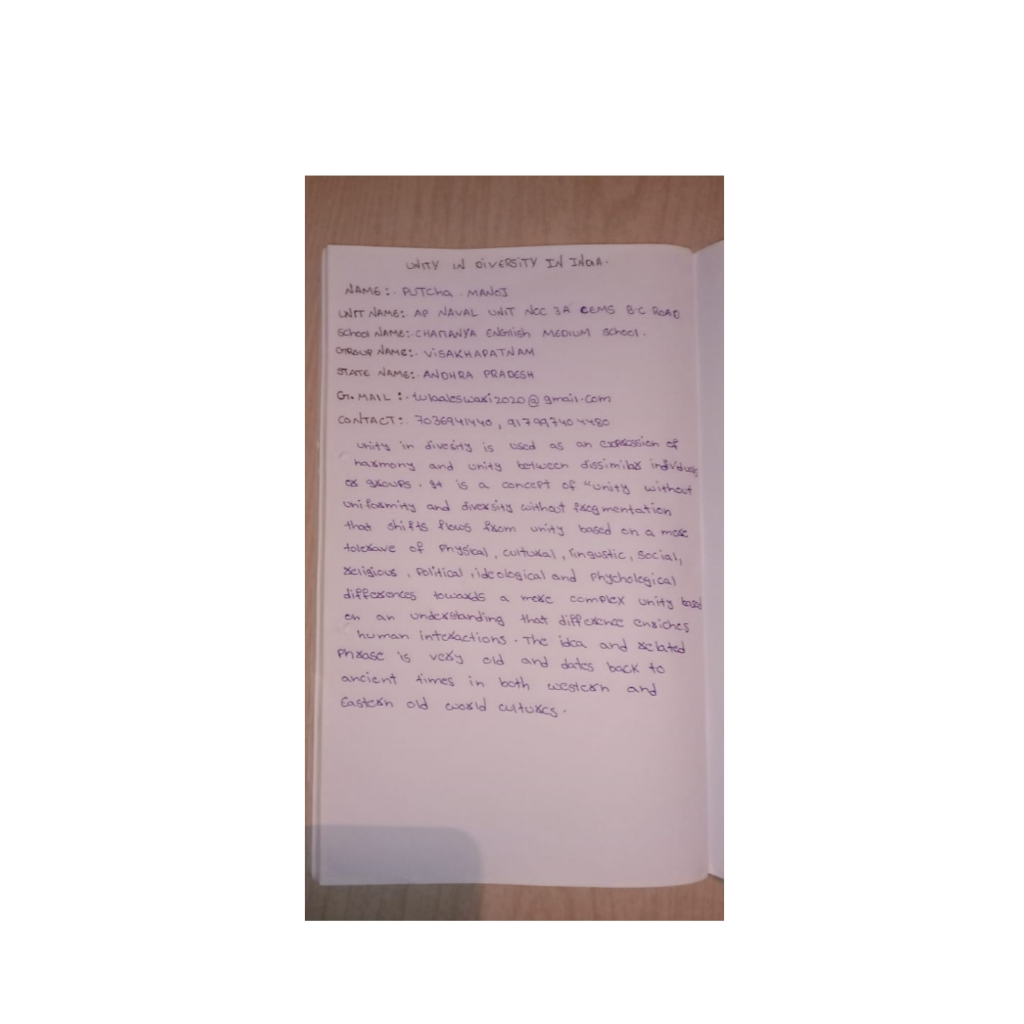 UNITY IN DIVERSITY IN INDIA.
NAME:- PUTCHA . MANOJ
UNIT NAME:- AP NAVAL UNIT NCC 3A CEMS B.C ROAD
School NAME:- CHAITANYA ENGlish MEDIUM School.
GROUP NAME:- VISAKHAPATNAM
STATE NAME:- ANDHRA PRADESH
G.MAIL :-
CONTACT:- 7036941440,
unity in diversity is used as an expression of
harmony and unity between dissimilar individuals
or groups. It is a concept of "unity without
uniformity and diversity without fragmentation
that shifts flows from unity based on a more
of Physical, cultural, lingustic, social,
religious, Political, ideological and Phychological
differences towards a more complex unity based
on an understanding that difference enriches
human interactions. The idea and related
Phrase is very old and dates back to
ancient times in both western and
Eastern old world cultures.